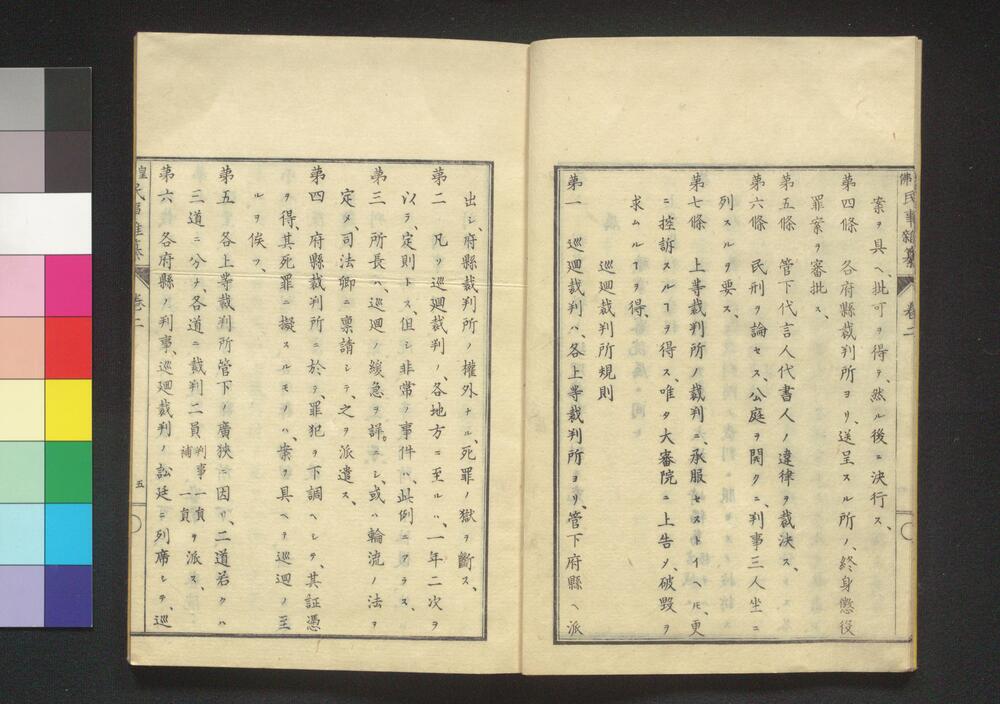 佛民事部類纂 卷二
案ヲ具ヘ、批可ヲ得テ、然ル後ニ決行ス、
第四條 各府縣裁判所ヨリ、送呈スル所ノ、終身懲役
罪案ヲ審批ス、
第五條 管下代言人代書人ノ違律ヲ裁決ス、
第六條 民刑ヲ論セス、公庭ヲ開クニ、判事三人坐ニ
列スルヲ要ス、
第七條 上等裁判所ノ裁判ニ承服セストイヘ𪜈、更
ニ控訴スルヿヲ得ス、唯タ大審院ニ上告シ、破毀ヲ
求ムルヿヲ得、
巡廻裁判所規則
第一 巡廻裁判ハ、各上等裁判所ヨリ、管下府縣ヘ派
出シ、府縣裁判所ノ權外ナル、死罪ノ獄ヲ斷ス、
第二 凡ソ巡廻裁判ノ、各地方ニ至ルハ、一年二次ヲ
以テ、定則トス、但シ非常ノ事件ハ、此例ニアラス、
第三 所長ハ、巡廻ノ緩急ヲ詳。ニシ、或ハ輪流ノ法ヲ
定メ、司法卿ニ稟請シテ、之ヲ派遣ス、
第四 府縣裁判所ニ於テ、罪犯ヲ下調ヘシテ、其証憑
ヲ得、其死罪ニ擬スルモノハ、案ヲ具ヘテ巡廻ノ至
ルヲ俟ツ、
第五 各上等裁判所管下ノ廣狹ニ因リ、二道若クハ
三道ニ分ケ、各道ニ裁判二員 判事一員 補一員 ヲ派ス、
第六 各府縣ノ判事、巡廻裁判ノ訟廷ニ列席シテ、巡
卷二 五